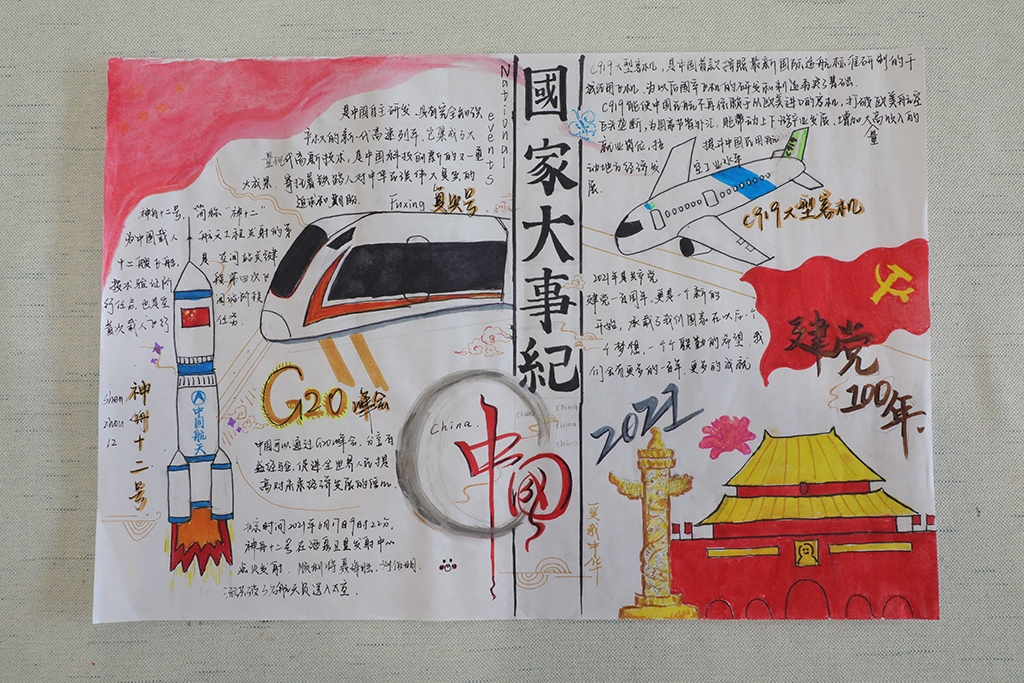 國家大事紀
National events
是中国自主研发、具有完全知识
量现代高新技术,是中国科技创新的又一重
大成果.寄托着铁路人对中华民族伟大复兴的
追求和期盼.
Fuxing 复兴号
神舟十二号,简称“神十二”
为中国载人航天工程发射的第
十二艘飞船,是空间站关键
技术验证阶段第四次飞
行任务,也是空间站阶段
首次载人飞行任务.
Shen
zhou
12
神舟十二号
中国航天
G20 峰会
中国可以通过G20峰会,分享有
益经验,促进全世界人民提
高对未来经济发展的信心.
北京时间2021年6月17日9时22分,
神舟十二号在酒泉卫星发射中心
点火发射.顺利将聂海胜、刘伯明、
汤洪波3名航天员送入太空.
China.
中國
China
China
China
C919大型客机,是中国首款按照最新国际适航标准研制的干
线民用飞机,为以后国产飞机的研发和制造奠定了基础.
C919能使中国民航不再依赖于从欧美进口的客机,打破欧美航空
巨头垄断,为国家节省外汇,能带动上下游产业发展,增加大量高收入的
就业岗位,拉动地方经济发展.
提升中国民用航空工业水平
C919大型客机
2021年是共产党
建党一百周年,更是一个新的
开始,承载了我们国家在以后一个
个梦想,一个个联勤的希望.我
们会有更多的一百年.更多的成就
建党
100年.
2021
一爱我中华